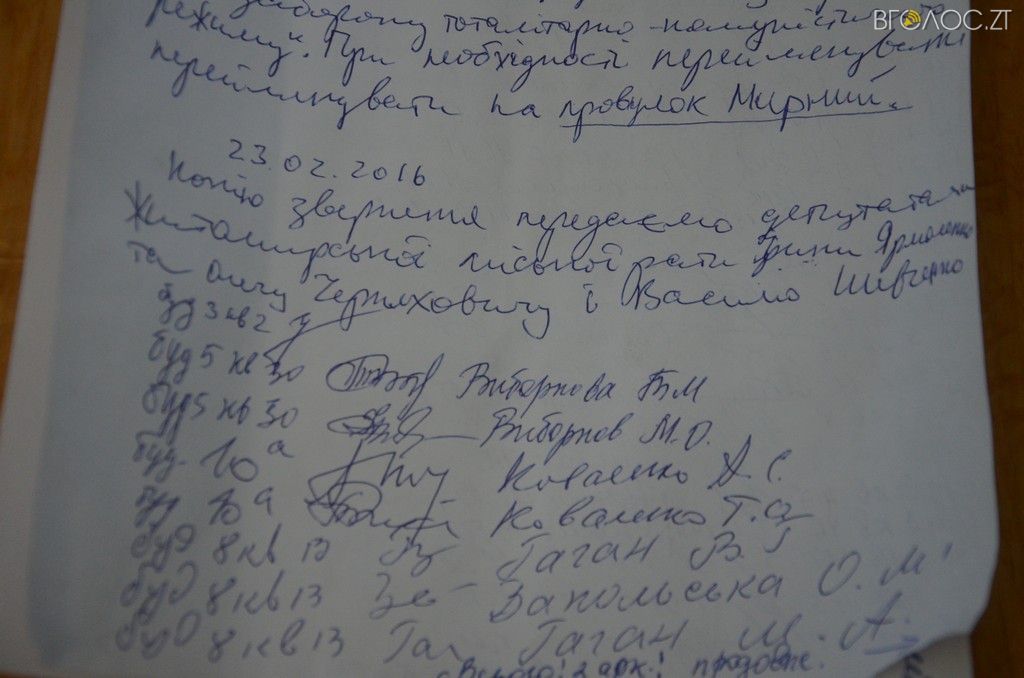 ВГОЛОС.ZT
заборону тоталітарно-комуністичного
режиму". При необхідності перейменувати
перейменувати на провулок Мирний.
23.02.2016
Копію звернення передаємо депутатам
Житомирської міської ради Ярмоленко
та Олегу Черняховичу і Василю Шевченко
буд 3 кв 2
буд 5 кв 30 Виборнова Т М
буд 5 кв 30 Виборнов М.О.
буд. 10а Коваленко А. С.
буд 10а Коваленко Т.
буд 8 кв 13 Гаган В
буд 8 кв 13 Запольська О. М
буд 8 кв 13 Гаган М. А.
2 арк.